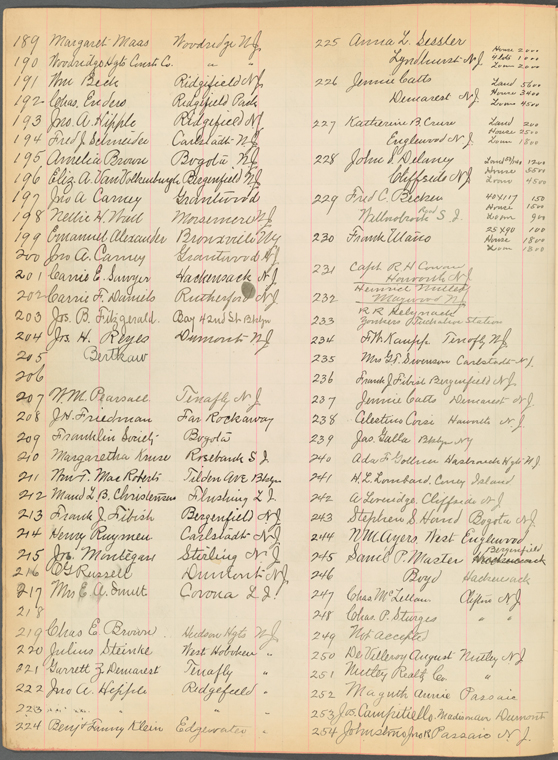 189 Margaret Maas Woodridge N.J.
190 Woodridge Hgts Const. Co. " "
191 Wm Beck Ridgifield N.J.
192 Chas. Enders Ridgifield Park
193 Jno A. Hipple Ridgifield N.J.
194 Fred J. Schneider Carlstadt N.J.
195 Amelia Brown Bogota, N.J.
196 Eliz. A. Van Valkenburgh Bergenfield N.J.
197 Jno A Carney Grantwood
198 Nellie H. Wall Morsemere N.J.
199 Emanuel Alexander Bronxville N.Y.
200 Jno A. Carney Grantwood N.J.
201 Carrie E. Sawyer Hackensack N.J.
202 Carrie F. Daniels Rutherford N.J.
203 Jos. B. Fitzgerald Bay 42nd St Bklyn
204 Jos. H. Reyes Dumont N.J.
205
206
207 W.M. Pearsall Tenafly N.J.
208 J.H. Friedman Far Rockaway
209 Franklin Society Bogota
210 Margaretha Kruse Rosebank S.I.
211 Wm F. Mac Roberts Tilden Ave Bklyn
212 Maud L. B. Christensen Flushing L.I.
213 Frank J. Fibish Bergenfield N.J.
214 Henry Ruymen Carlstadt N.J.
215 Jos. Montegari Stirling N.J.
216 Russell Dumont N.J.
217 Mrs E. A. Smult Corona L.I.
218
219 Chas E. Brown Hudson Hgts N.J.
220 Julius Steinke West Hoboken "
221 Garrett Z. Demarest Tenafly "
222 Jno A. Hepple Ridgefield "
223
224 Benj & Fanny Klein Edgewater "
225 Anna L. Sessler House 2000
Lyndhurst N.J. 4 lots 1000
Loan 2000
226 Jennie Catts Land 5600
Demarest N.J. House 3400
Loan 4500
227 Katherine B. Cruse Land 200
Englewood N.J. House 2500
Loan 1800
228 John S. Delaney Land 1200
Cliffside N.J. House 5500
Loan 4500
229 Fred C. Becker 40x117 150
Road S.I. House 1500
Loan 900
230 Frank 25x90 100
House 1800
Loan 1300
231 Capt. R.H. Cowan
Haworth N.J.
Heinrich
232 Maywood N.J.
R R
233 Yonkers Station
234 F.W. Kauppe Tenafly N.J.
235 Mrs G.F. Swenson Carlstadt N.J.
236 Frank J Fibish Bergenfield N.J.
237 Jennie Catts Demarest N.J.
238 Celestino Corsi Haworth N J
239 Jas. Galla Bklyn NY
240 Ada F. Gollner Hasbrouck Hgts N.J.
241 H.L. Lombard, Coney Island
242 A Loveidge. Cliffside N J
243 Stephen S. Hand Bogota N.J.
244 N.M. Ayers, West Englewood
Bergenfield
245 Saml P. Master Hackensack
246 Boyd Hackensack
247 Chas McLellan Clifton N.J.
248 Chas. P. Sturges " "
249 Not accepted
250 De Villeroy August Nutley N J
251 Nutley Realty Co. "
252 Annie Passaic
253 Jos. Campitiello. Madison Ave Dumont
254 Passaic N.J.